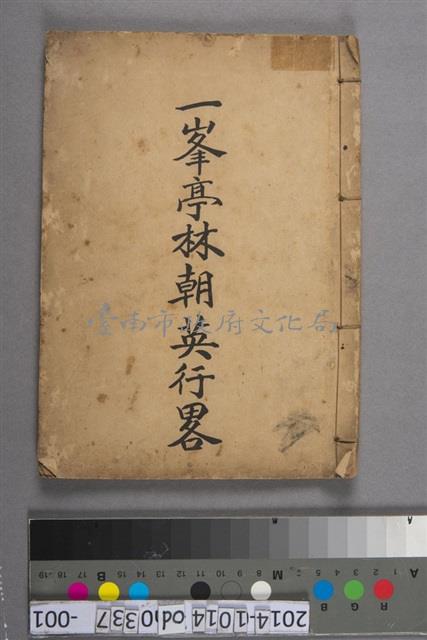 一峯亭林朝英行畧
臺南市政府文化局
A 1 2 3 4 5 6 M 8 9 10 11 12 13 14 15 B 17 18 19
R G B
2014-1014-od10337-001